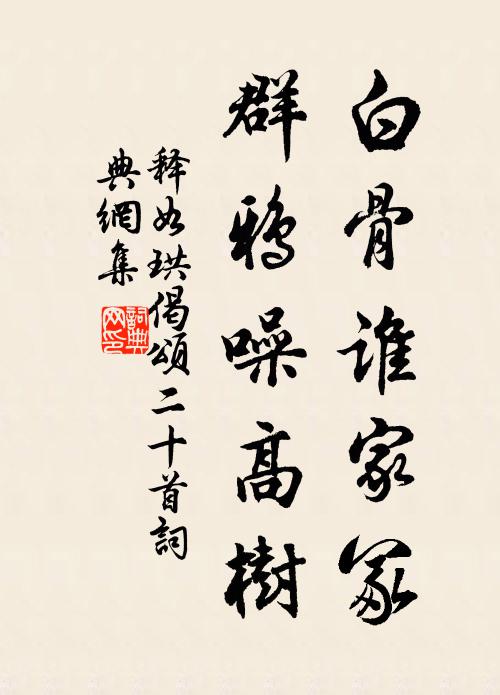 白骨谁家冢
群鸦噪高樹
释如珙偈頌二十首詞
典網集
詞典
网印